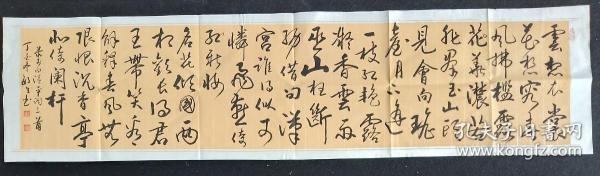 雲想衣裳
花想容春
風拂檻露
花華濃若
非羣玉山頭
見會向瑤
臺月下逢
一枝紅艷露
凝香雲雨
巫山枉斷
腸借問漢
宮誰得似可
憐飛燕倚
新妝
名花傾國兩
相歡長得君
王帶笑看
解釋春風無
限恨沉香亭
北倚闌杆
李白清平调三首
丁亥年
書
孔夫子旧书网
www.kongfz.com